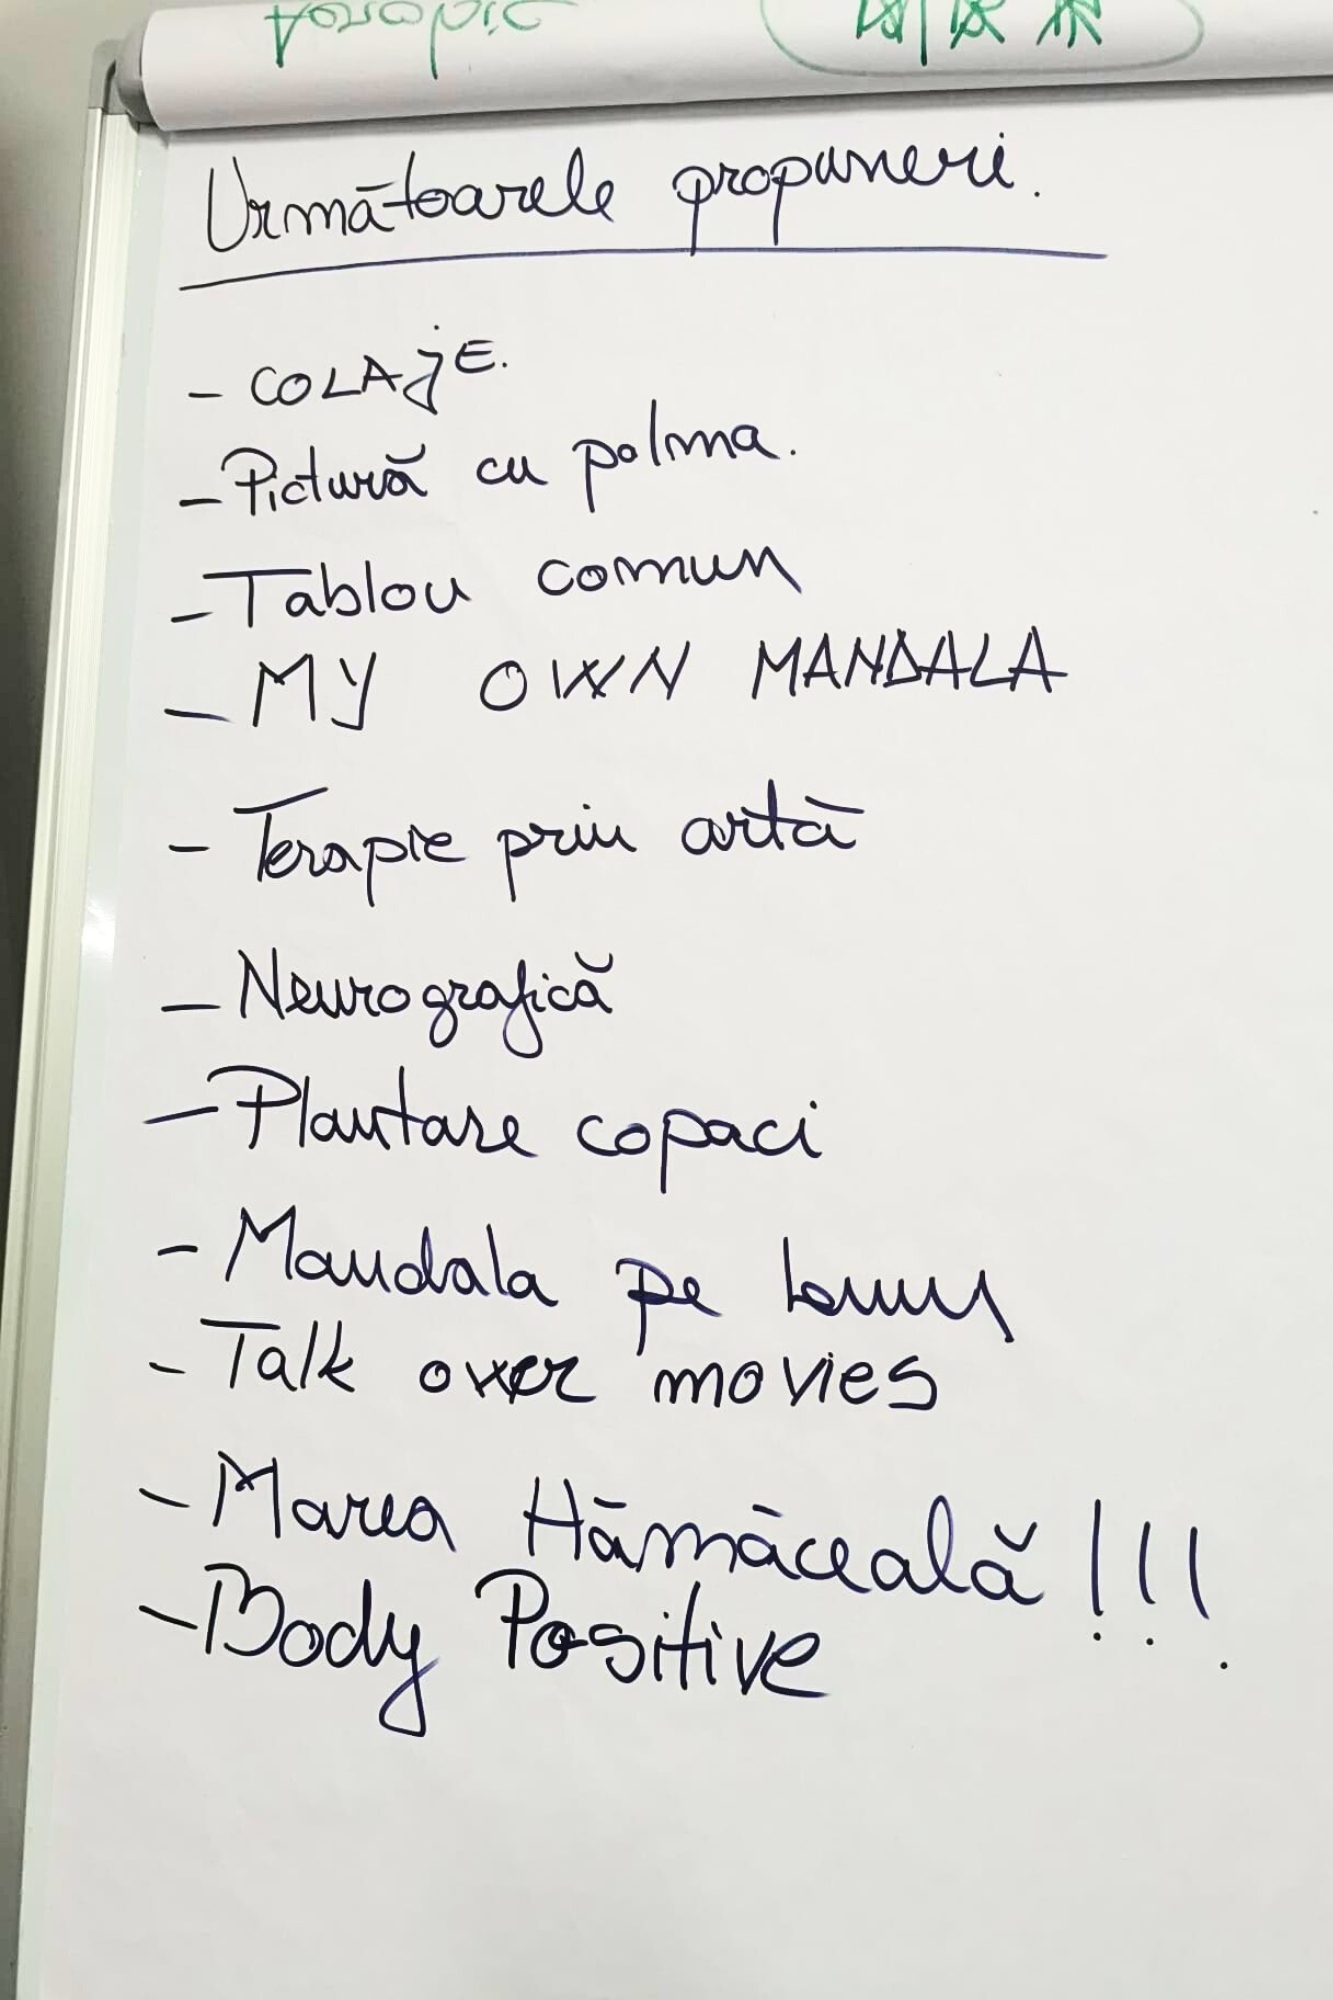 Următoarele propuneri.
- COLAjE.
- Pictură cu palma.
- Tablou comun
- MY OWN MANDALA
- Terapie prin artă
- Neurografică
- Plantare copaci
- Mandala pe lemn
- Talk over movies
- Marea Hămăceală!!!
- Body Positive